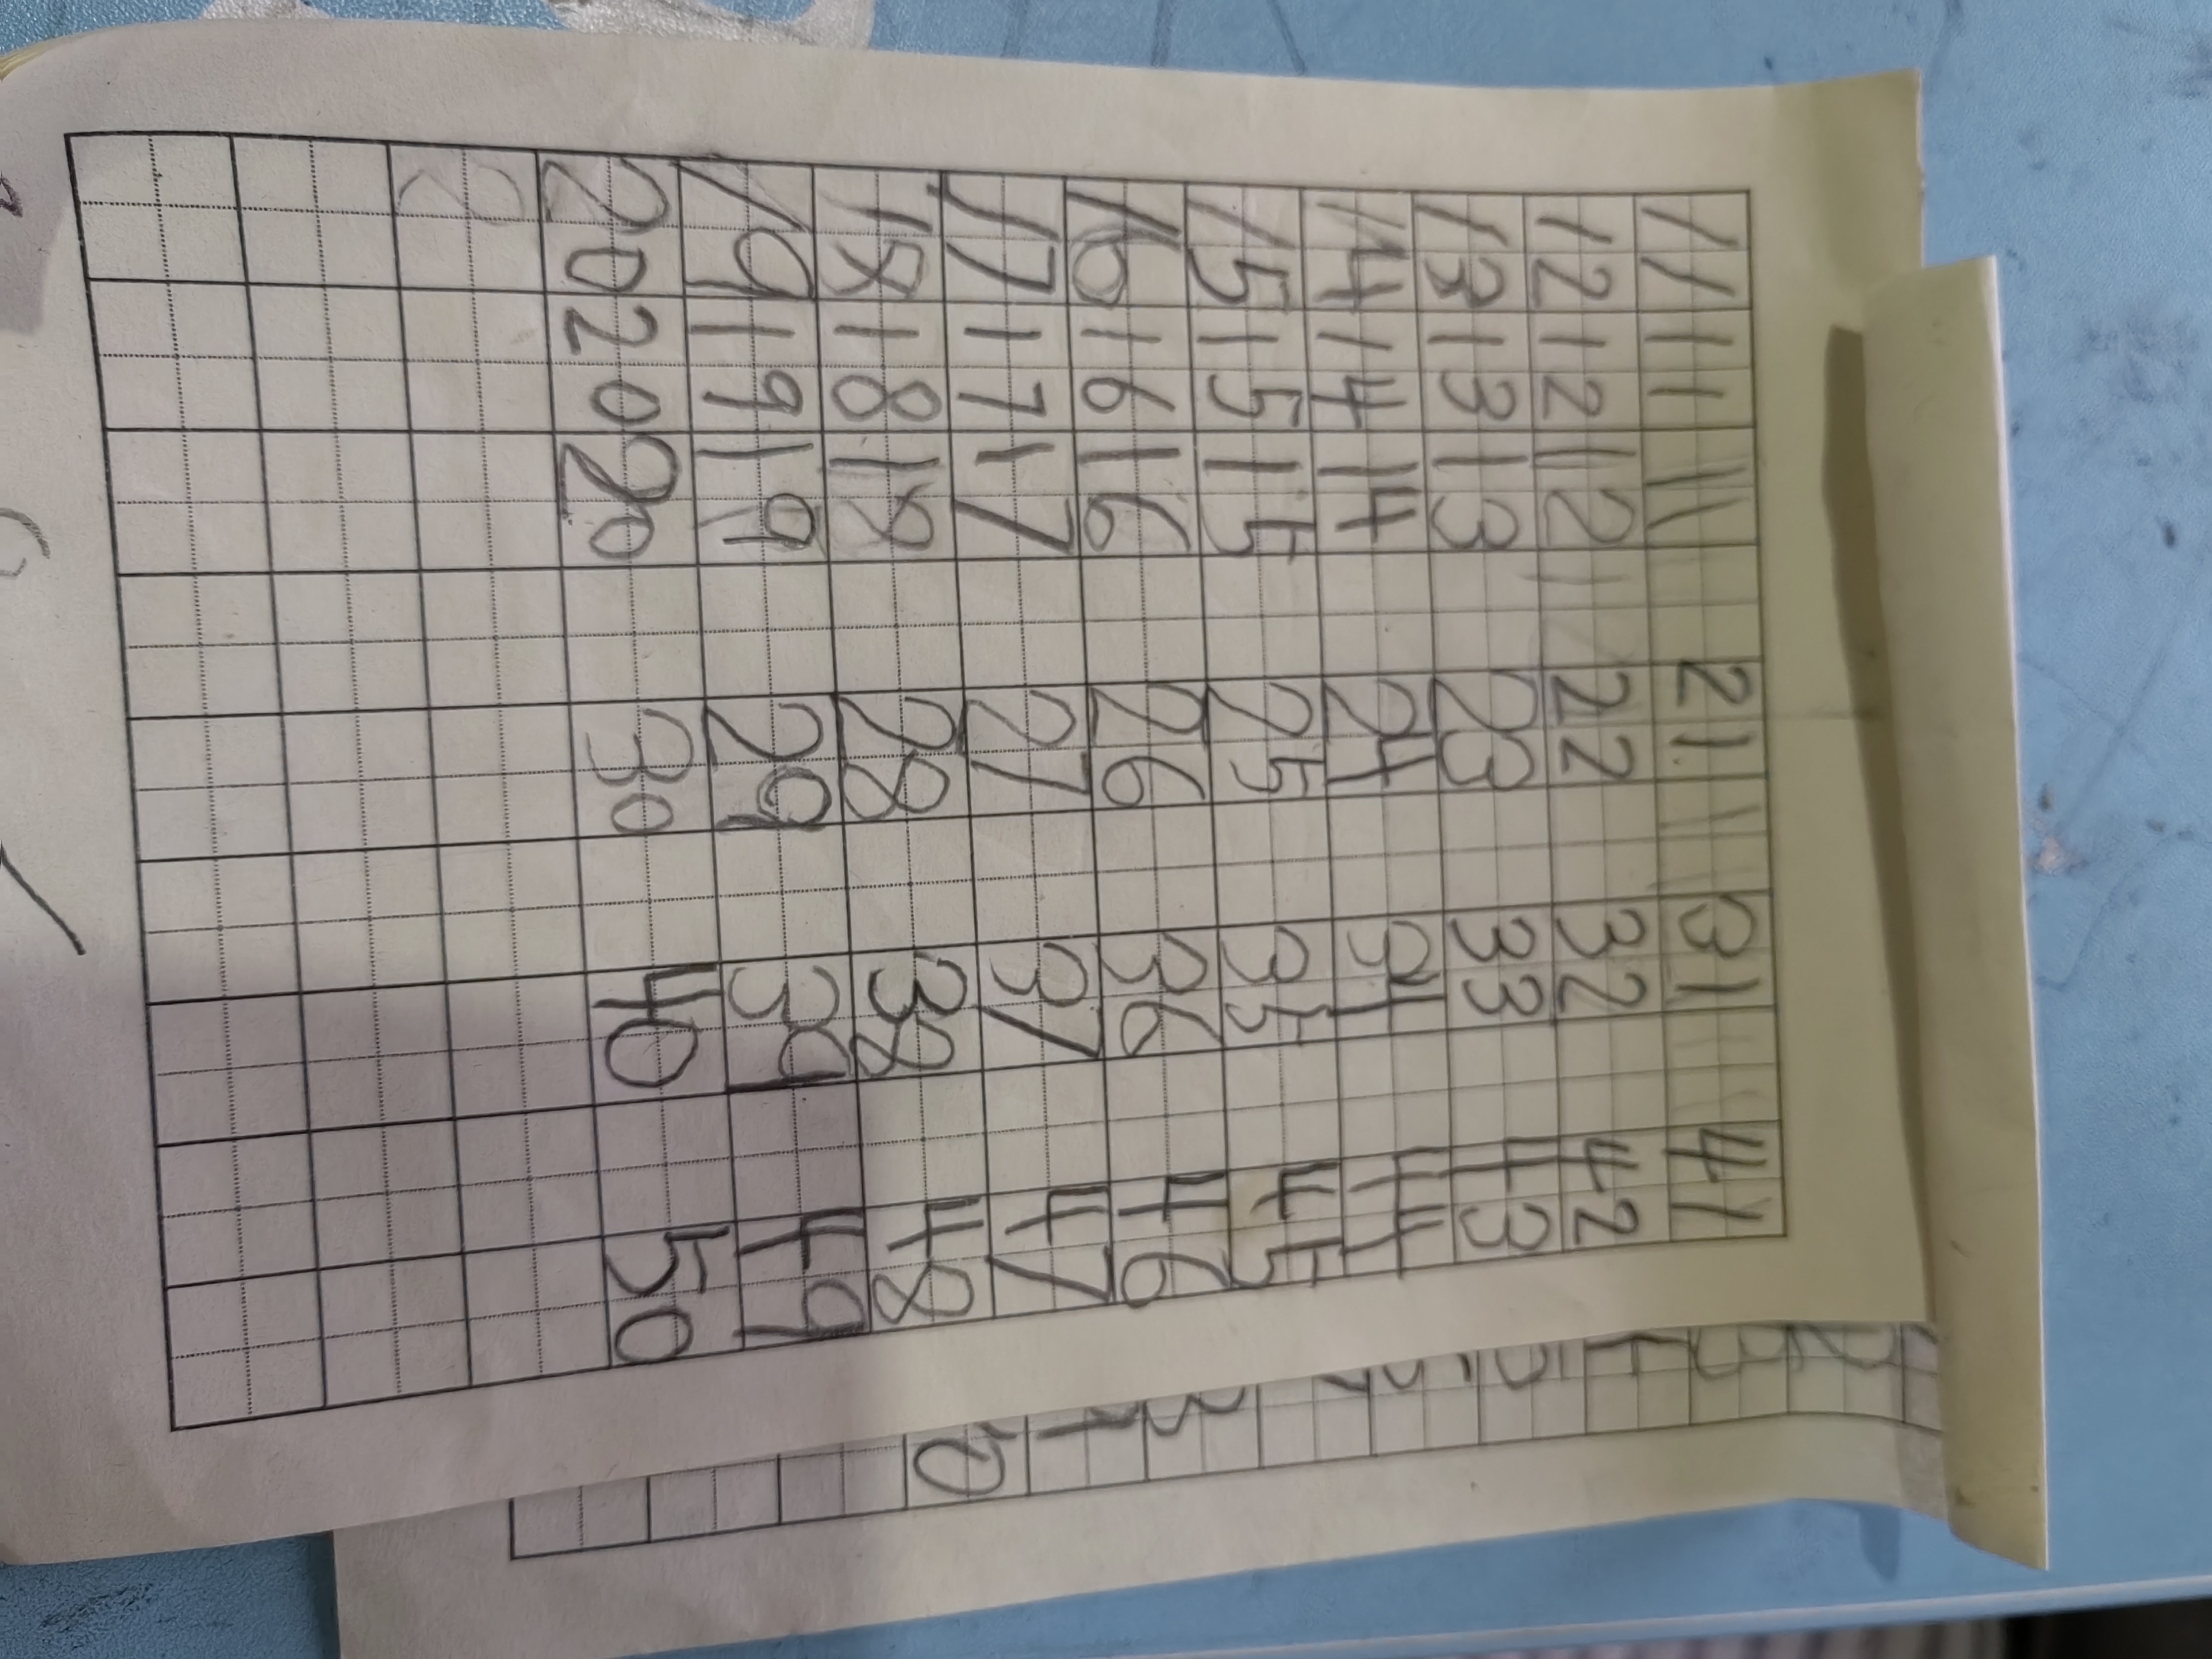 11 11 11 21 31 41
12 12 12 22 32 42
13 13 13 23 33 43
14 14 14 24 34 44
15 15 15 25 35 45
16 16 16 26 36 46
17 17 17 27 37 47
18 18 18 28 38 48
19 19 19 29 39 49
20 20 20 30 40 50
2